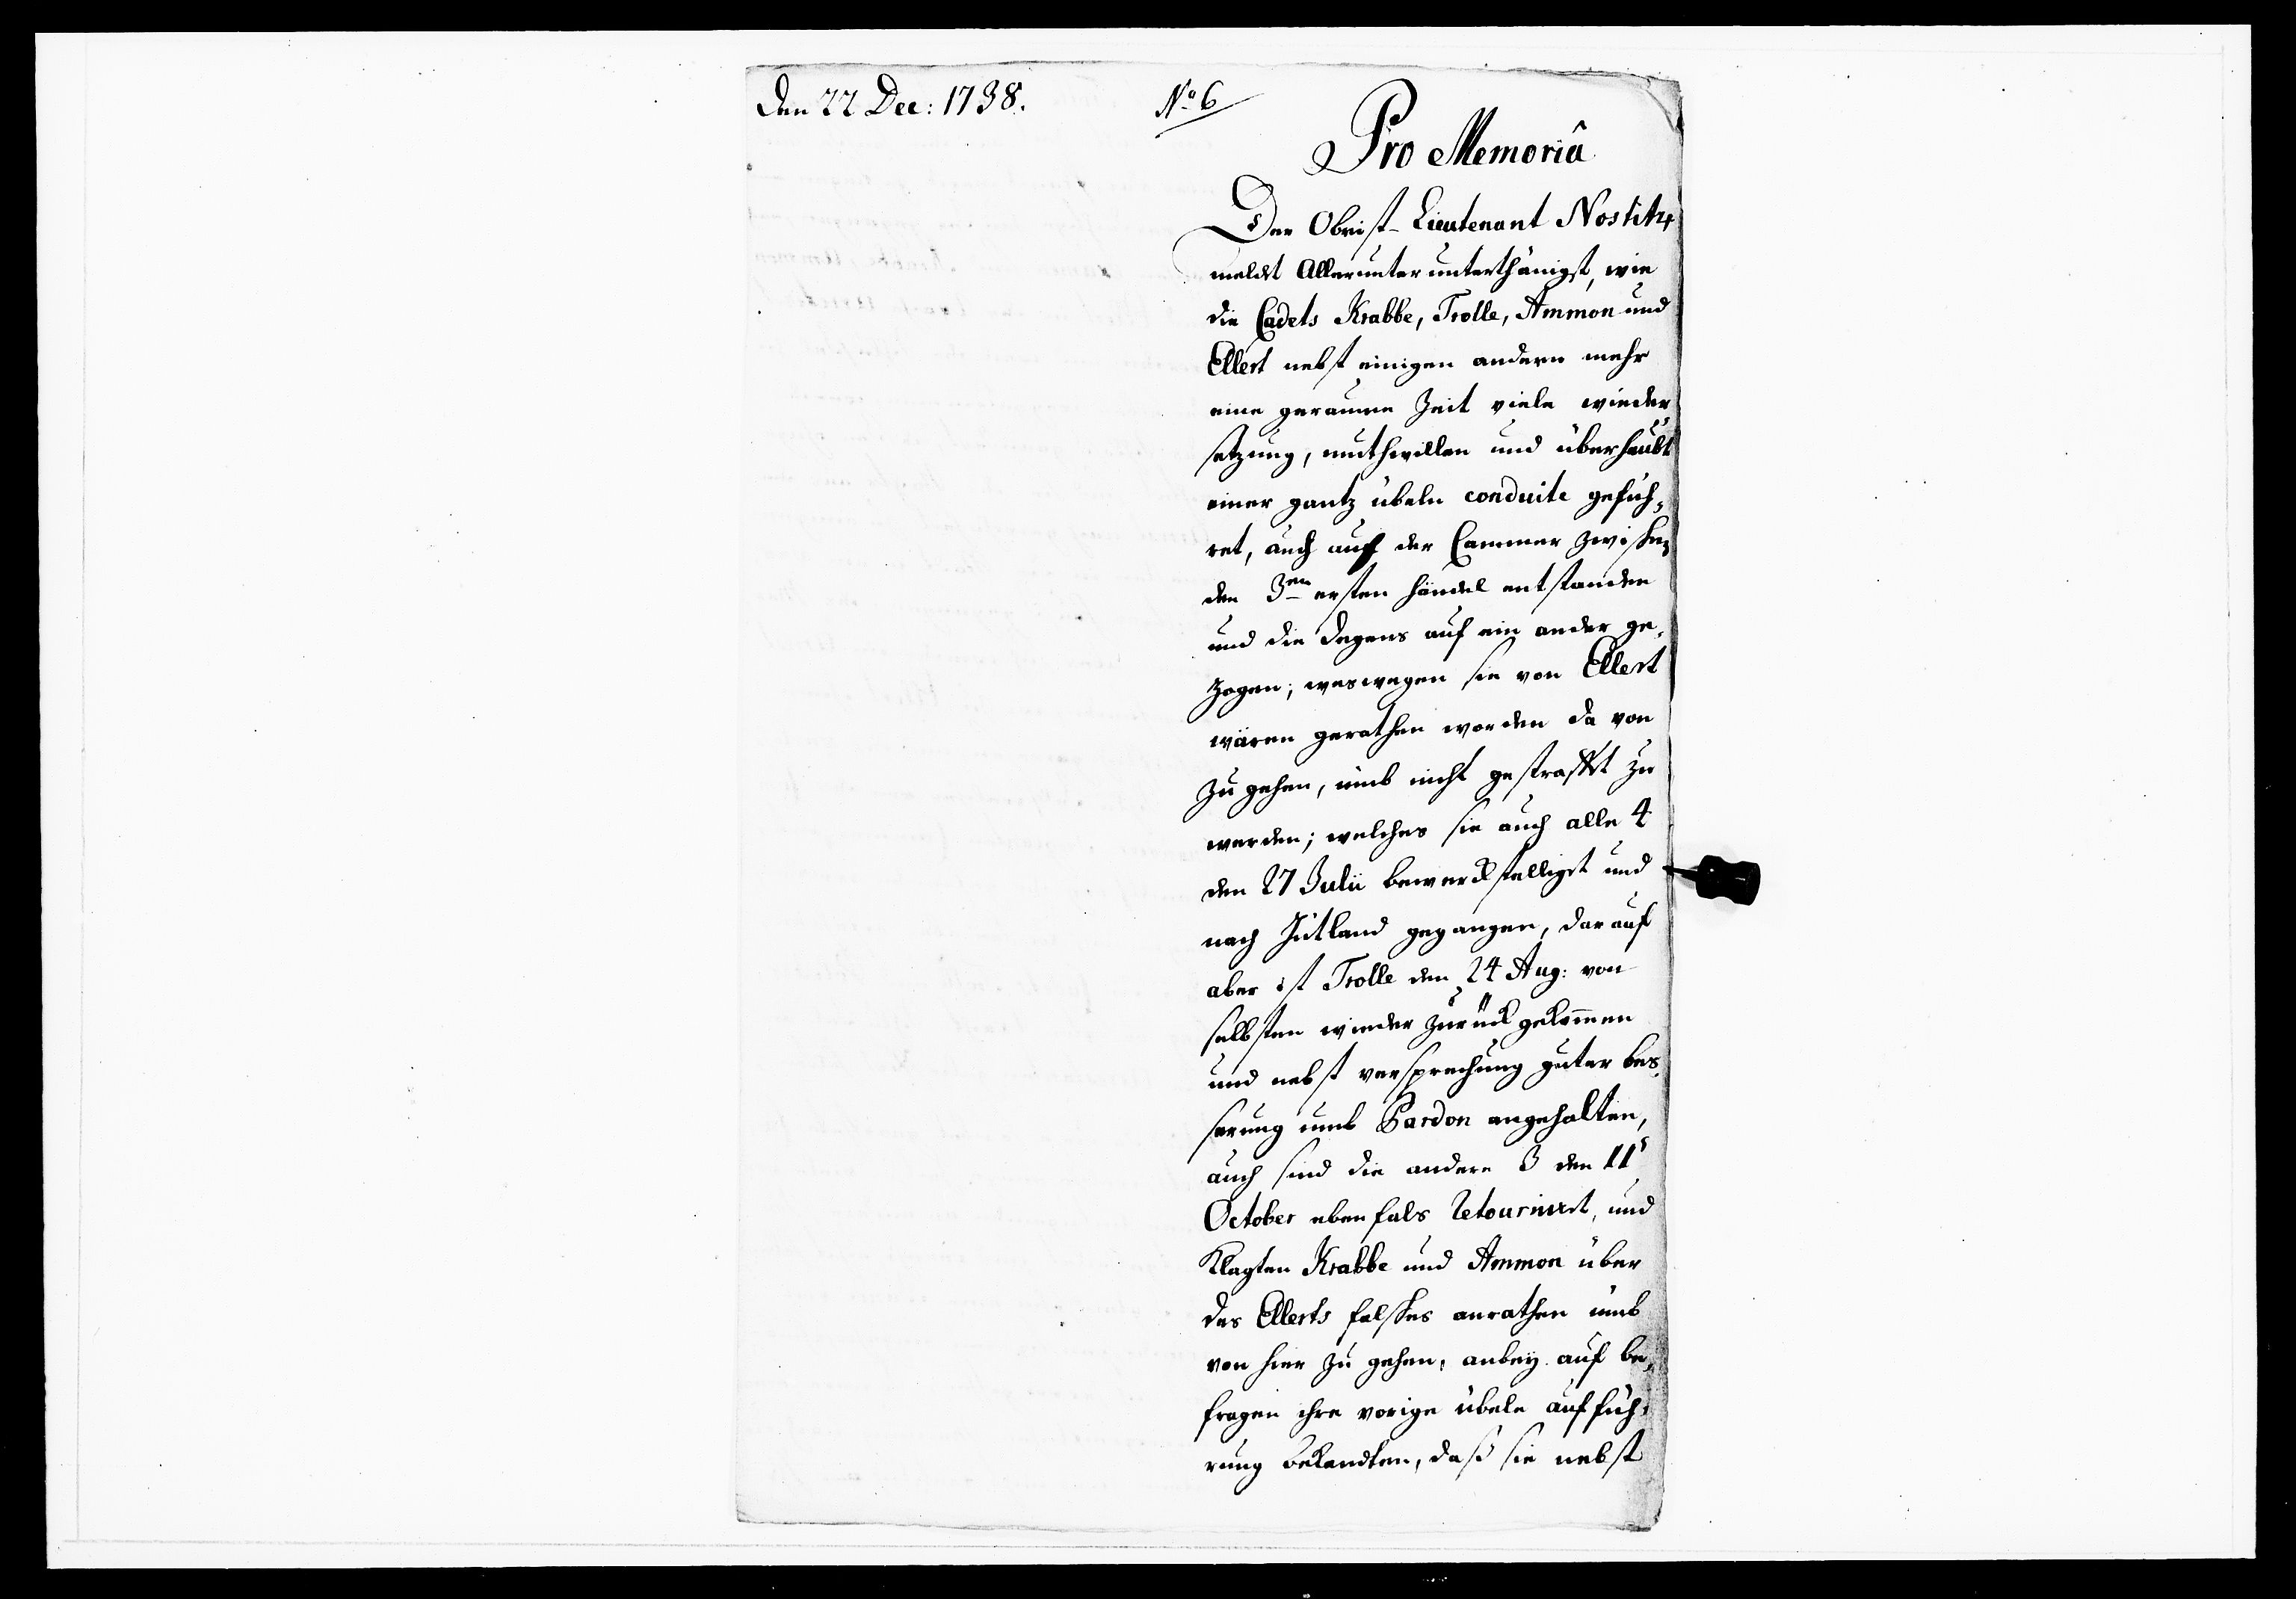 Den 22 Dec: 1738.
No 6
Pro Memoriâ
Der Obrist-Lieutenant Nostitz
meldet Allerunterunterthänigst, wie
die Cadets Krabbe, Trolle, Ammon und
Ellert nebst einigen andern mehr
eine geraume Zeit viele wieder¬
setzung, muthwillen und überhaubt
einer gantz übeln conduite gefüh¬
ret, auch auf der Cammer zwischen
den 3en ersten händel entstanden
und die Degens auf ein ander ge¬
zogen; weswegen sie von Ellert
wären gerathen worden da von
zu gehen, umb nicht gestrafft zu
werden; welches sie auch alle 4
den 27 Julii bewerckstelliget und
nach Jütland gegangen, darauf
aber ist Trolle den 24 Aug: von
selbsten wieder zurück gekommen
und nebst versprechung guter bes¬
serung umb Pardon angehalten,
auch sind die andere 3 den 11t
October ebenfals retourniret, und
Klagten Krabbe und Ammon über
des Ellerts falsches anrathen umb
von hier zu gehen, anbey auf be¬
fragen ihre vorige übele aufführ¬
rung bekandten, daß sie nebst